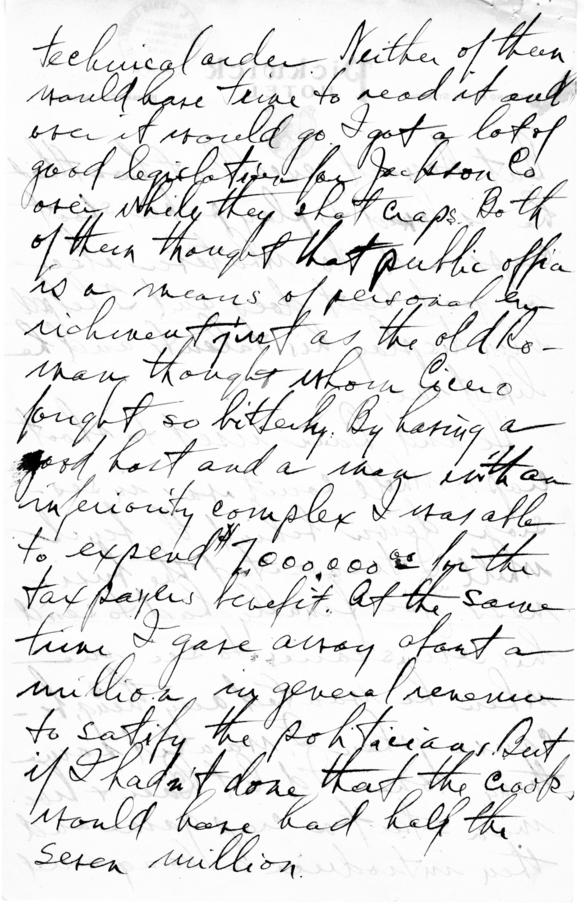 technical order. Neither of them
would have time to read it and
over it would go. I got a lot of
good legislation for Jackson Co
over while they shot craps. Both
of them thought that public office
is a means of personal en-
richment just as the old Ro-
man thought whom Cicero
fought so bitterly. By having a
good host and a man with an
inferiority complex I was able
to expend $7,000,000.00 for the
taxpayers benefit. At the same
time I gave away about a
million in general revenue
to satisfy the politicians. But
if I hadn't done that the crooks
would have had half the
seven million.